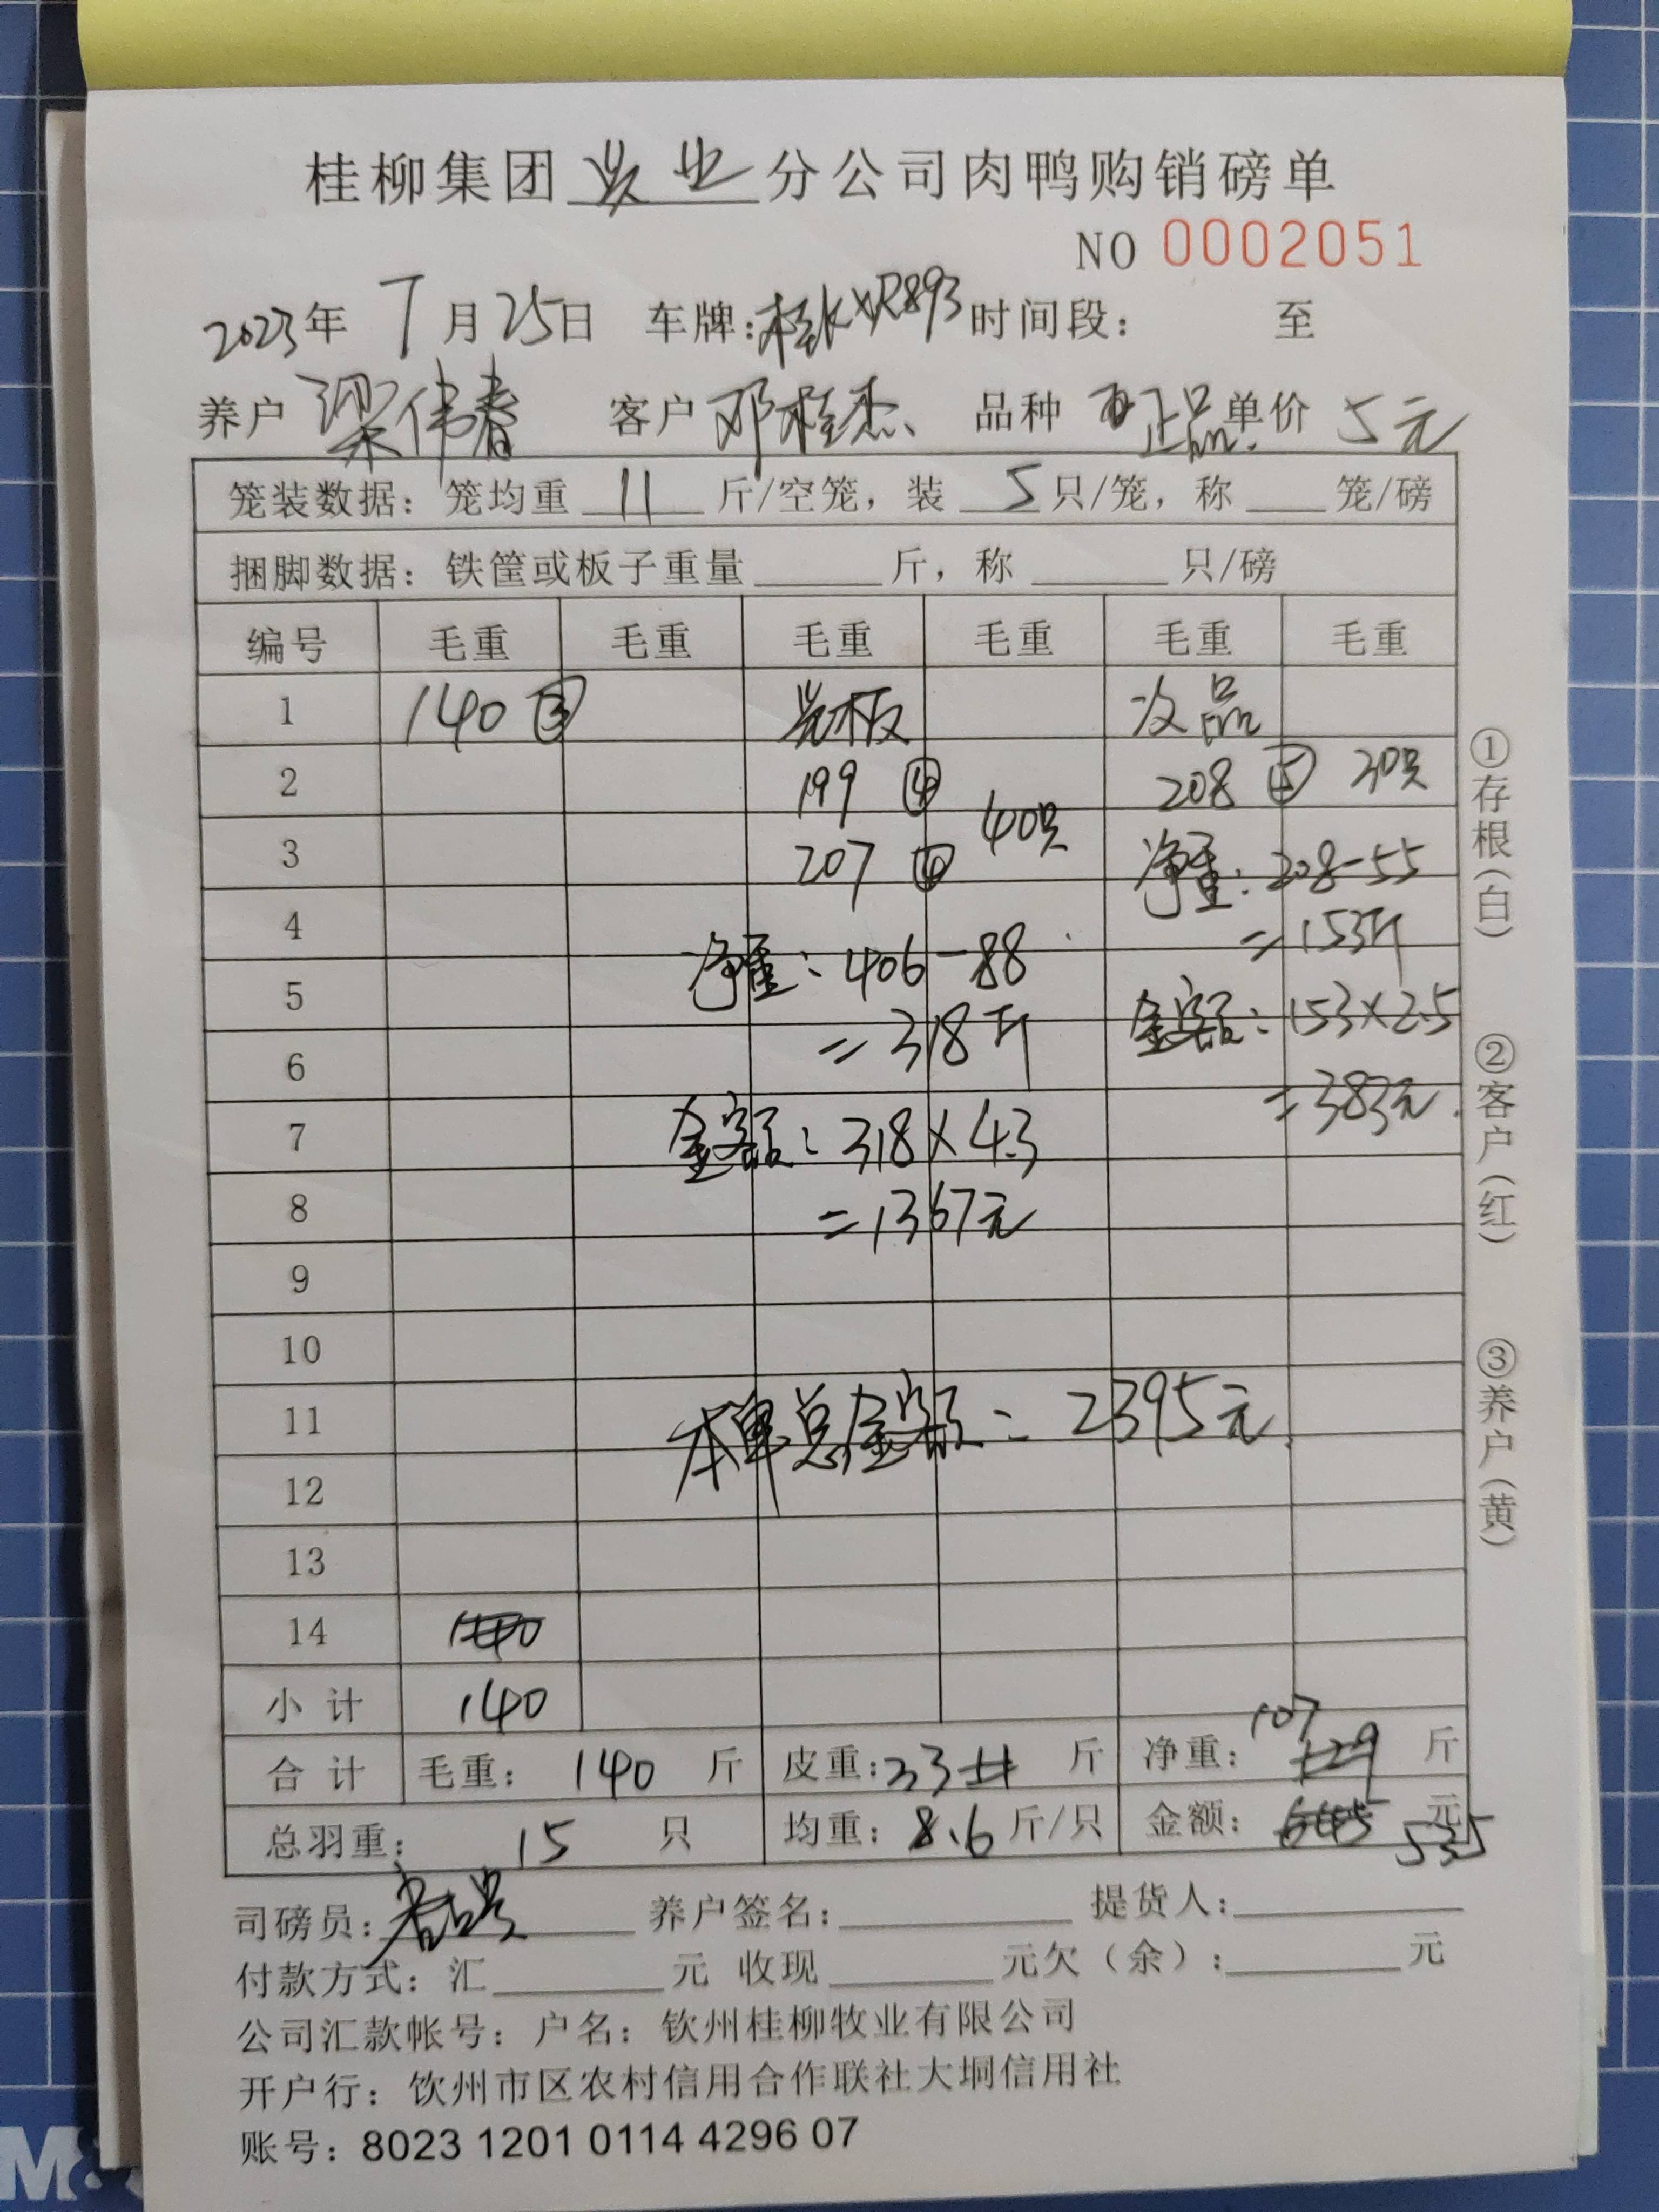 桂柳集团 业 分公司肉鸭购销磅单
NO 0002051
2023年 7月25日 车牌: 时间段: 至
养户 梁伟春 客户 邓桂杰 品种 正品 单价 5元
笼装数据: 笼均重 11 斤/空笼, 装 5 只/笼, 称 笼/磅
捆脚数据: 铁筐或板子重量 斤, 称 只/磅
编号 毛重 毛重 毛重 毛重 毛重 毛重
1 140 ③ 光板 次品
2 199 ④ 208 ⑤ 30只
3 207 ④ 40只 净重: 208-55
4 =153斤
5 净重: 406-88 金额: 153×2.5
6 =318斤 =383元
7 金额: 318×4.3
8 =1367元
9
10
11 本单总金额: 2395元
12
13
14 140
小计 140
合计 毛重: 140 斤 皮重: 33 11 斤 净重: 107 129 斤
总羽重: 15 只 均重: 8.6 斤/只 金额: 645 元 535
司磅员: 养户签名: 提货人:
付款方式: 汇 元 收现 元欠(余): 元
公司汇款帐号: 户名: 钦州桂柳牧业有限公司
开户行: 钦州市区农村信用合作联社大垌信用社
账号: 8023 1201 0114 4296 07
①存根(白) ②客户(红) ③养户(黄)
M